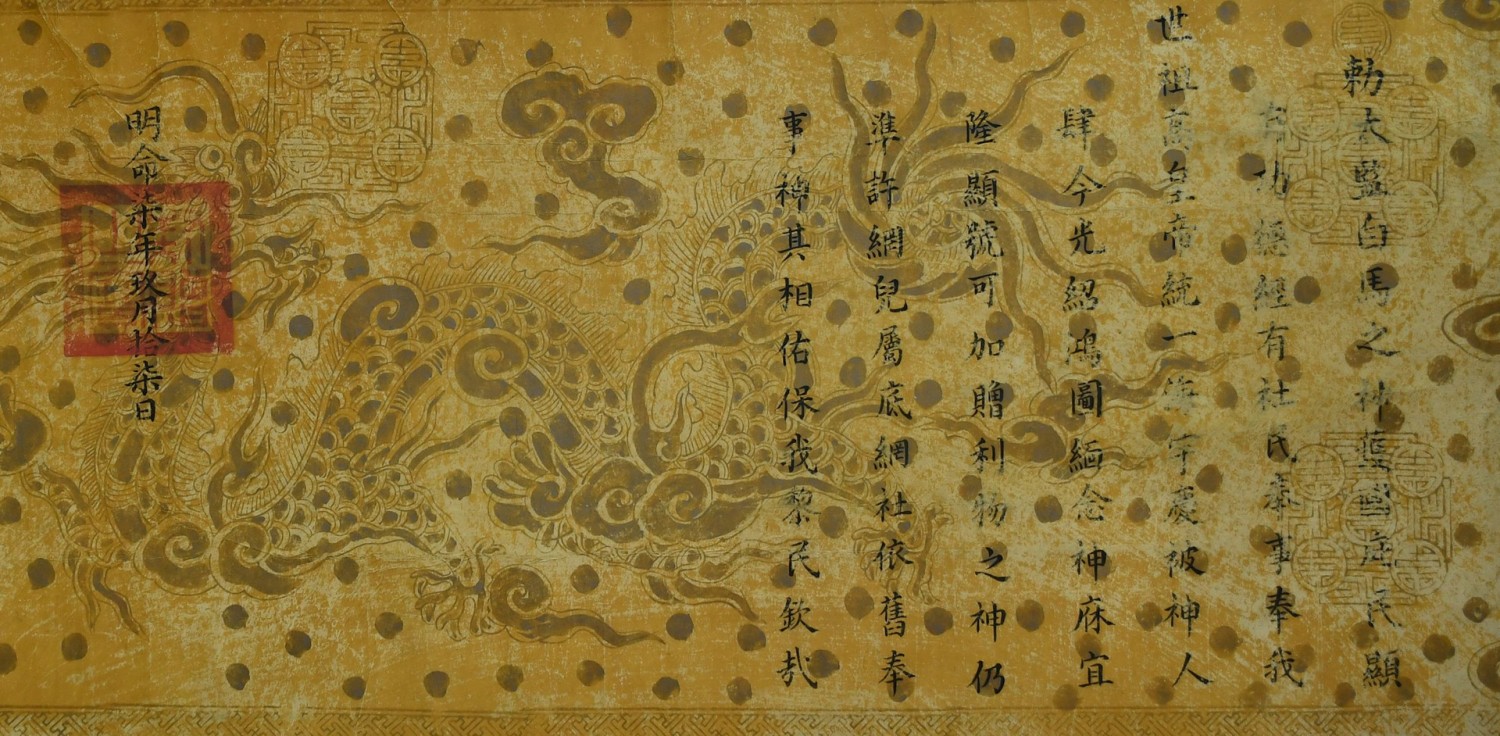 勅太藍白馬之神護國庇民顯
有功經有社民奉事奉我
世祖高皇帝統一海宇慶被神人
肆今光紹鴻圖緬念神庥宜
隆顯號可加贈利物之神仍
準許網兒屬底網社依舊奉
事神其相佑保我黎民欽哉
明命柒年玖月拾柒日